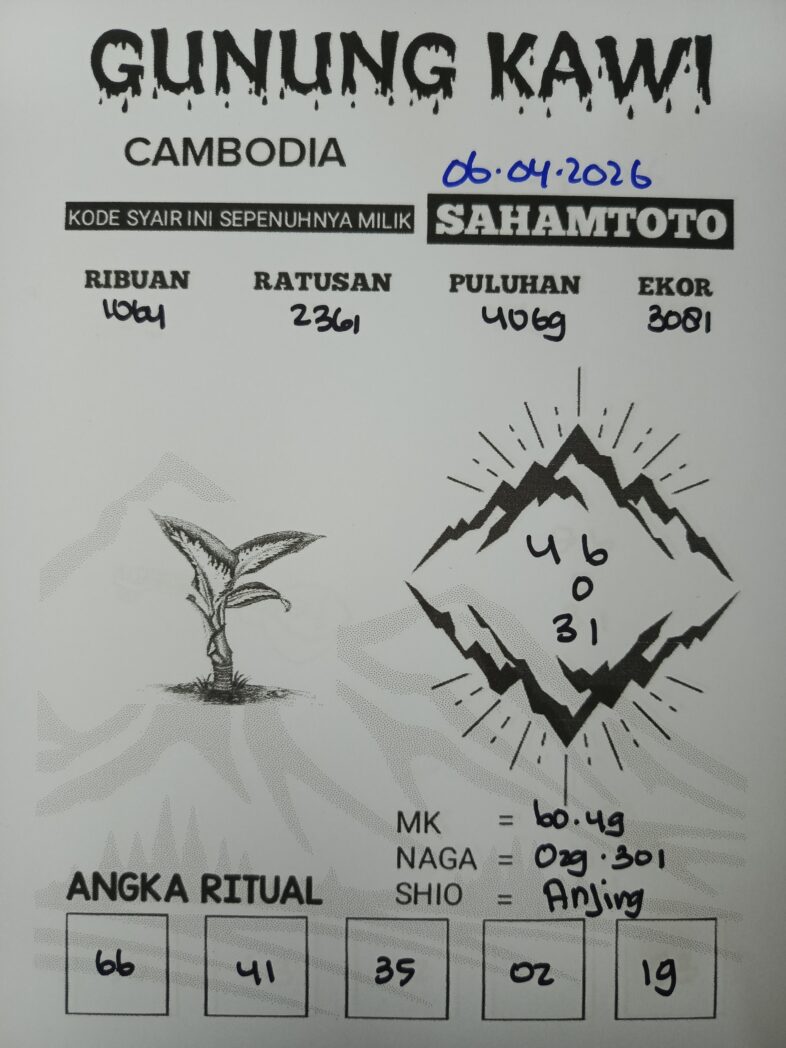 GUNUNG KAWI
CAMBODIA
06.04.2026
KODE SYAIR INI SEPENUHNYA MILIK SAHAMTOTO
RIBUAN RATUSAN PULUHAN EKOR
1064 2361 4069 3081
4 6
0
3 1
MK = 60.49
NAGA = 029.301
SHIO = Anjing
ANGKA RITUAL
66 41 35 02 19